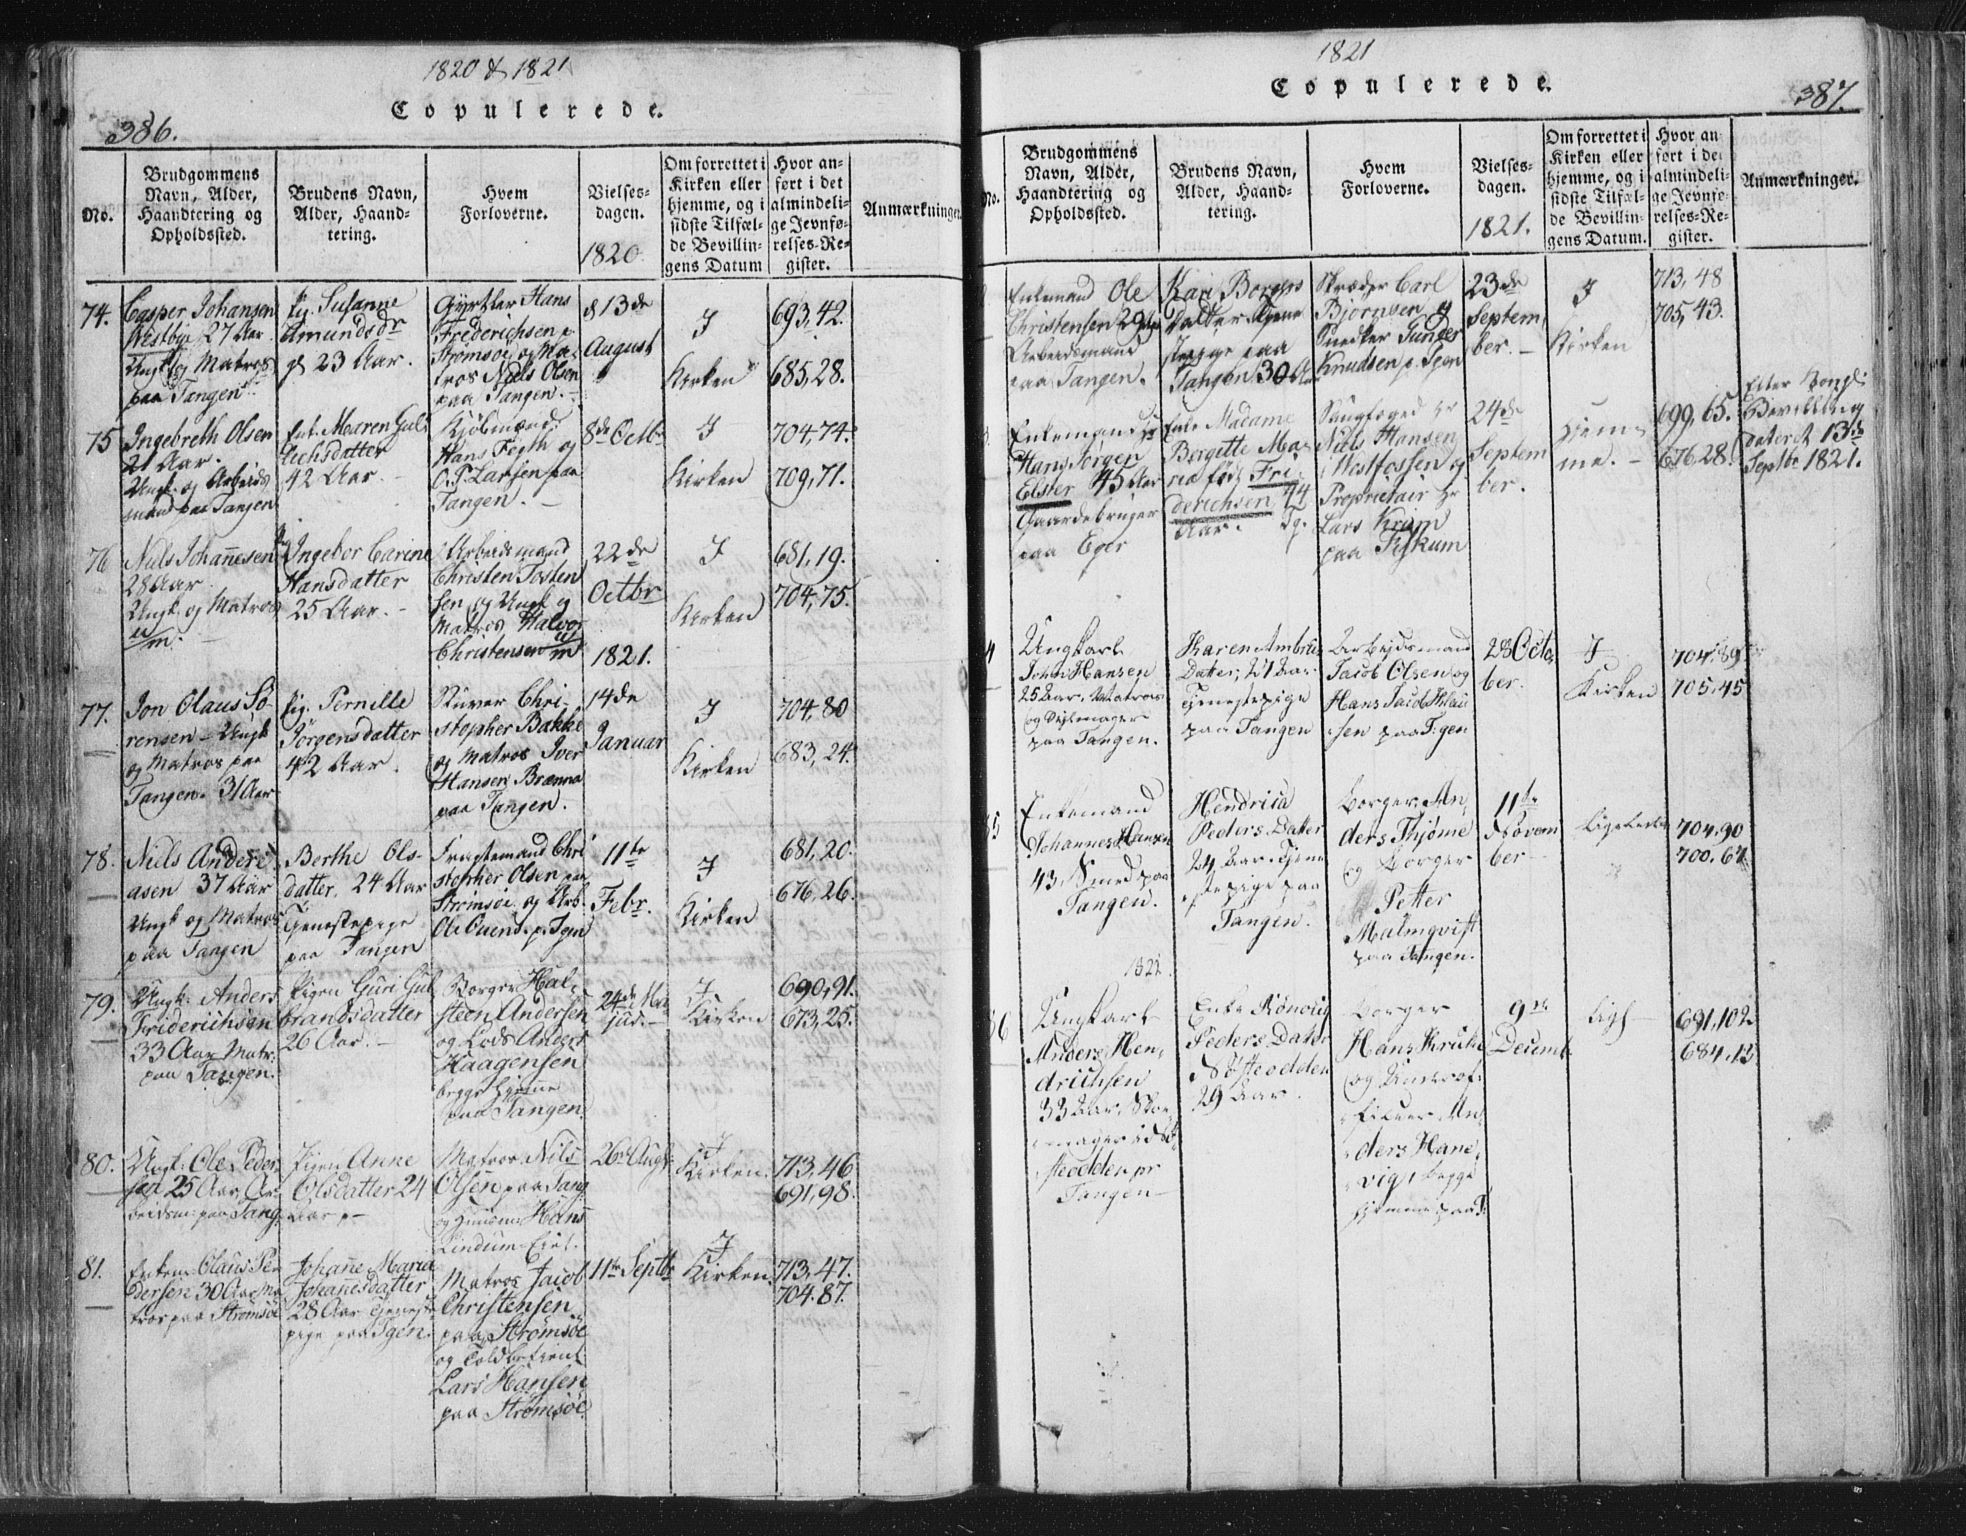 1820 & 1821
Copulerede.
386.
No.
Brudgommens
Navn, Alder,
Haandtering og
Opholdssted.
Brudens Navn,
Alder, Haand-
tering.
Hvem
Forloverne.
Vielses-
dagen.
1820
Om forrettet i
Kirken eller
hjemme, og i
sidste Tilfæl-
de Bevillin-
gens Datum
Hvor an-
ført i det
almindeli-
ge Jevnfø-
relses-Re-
gister.
Anmærkninger.
74.
Casper Johansen
Westbye, 27 Aar
Ungk. og Matros
paa Tangen
Pig. Susanne
Amundsdr
23 Aar.
Gyrtler Hans
Frederichsen p
Strømsøe og Ma-
tros Niels Olsen
paa Tangen.
d 13de
August
I
Kirken
693,42.
685,28.
75
Ingebreth Olsen
21 Aar.
Ungk. og Arbeids
mand paa Tangen
Ent. Maren Gul-
lichsdatter
42 Aar.
Kjøbmænd
Hans Fegth og
O. P. Larsen paa
Tangen.
8de Octbr
I
Kirken
704,74.
709,71.
76
Niels Johañesen
28 Aar
Ungk og Matros
Ingebor Carine
Hansdatter
25 Aar.
Arbeidsmand
Christen Tosten
sen og Ungk og
Matros Halvor
Christensen
22de
Octbr
I
Kirken
681,19.
704,75.
1821.
77.
Jon Olaus Sø-
rensen - Ungk
og Matros paa
Tangen. 31 Aar
Pig. Pernille
Jörgensdatter
42 Aar.
Stuver Chri-
stopher Bakke
og Matros Iver
Hansen Brænna
paa Tangen.
14de
Januar
I
Kirken
704,80
683,24.
78.
Niels Andere-
asen 37 Aar
Ungk og Matros
paa Tangen
Berthe Ols-
datter, 24 Aar
Tjenestepige
paa Tangen
Fragtemand Chri
stopher Olsen paa
Strømsøe og Arb.
Ole Ouens. p. Tgen
11te
Febr.
I
Kirken
681,20.
676,26.
79.
Ungk. Anders
Friderichsen
33 Aar Matr.
paa Tangen.
Pigen Guri Gul
brandsdatter
26 Aar.
Borger Hal-
steen Andersen
og Lods Anders
Haagensen
begge hjemme
paa Tangen.
24de
I
Kirken
690,91.
673,25.
80.
Ungk. Ole Peder
sen 25 Aar, Ar-
beidsm: paa Tang.
Pigen Anne
Olsdatter 24
Aar
Matros Nils
Olsen paa Tang
og Huusm: Hans
Lindum Eiet.
26de Augst
I
Kirken.
713,46
691,98.
81.
Enkem: Olaus Pe-
dersen 30 Aar Ma
tros paa Strømsöe
Johañe Maria
Johañesdatter
28 Aar Tjeneste
pige paa Tgen.
Matros Jacob
Christensen
paa Strømsöe
og Toldbetjent
Lars Hansen
paa Strømsöe.
11te Septbr
I
Kirken.
713,47.
704.87.
1821
Copulerede.
387.
No.
Brudgommens
Navn, Alder,
Haandtering og
Opholdssted.
Brudens Navn,
Alder, Haand-
tering.
Hvem
Forloverne.
Vielses-
dagen.
1821.
Om forrettet i
Kirken eller
hjemme, og i
sidste Tilfæl-
de Bevillin-
gens Datum.
Hvor an-
ført i det
almindeli-
ge Jevnfø-
relses-Re-
gister.
Anmærkninger.
Enkemand Ole
Christensen 29 Aar
Arbeidsmand
paa Tangen.
Kari Borgers
Datter Tjene
stepige paa
Tangen 30 Aar
Skræder Carl
Bjørnsen og
Snedker Gunder
Knudsen p. Tgen
23de
Septem
ber.
I
Kirken
713,48
705,43.
Enkemand
Hans Jörgen
Elster 45 Aar
Gaardebruger
paa Eger
Enke Madame
Bergitte Ma-
ria föd Fri-
derichsen 44
Aar.
Saugfoged Hr
Niels Hansen
Westfossen og
Proprietair Hr
Lars Kram
paa Fiskum
24de
Septem
ber.
Hjem-
me.
699,65.
676,28.
Efter Kongl:
Bevilling
dateret 13de
Septbr 1821.
4
Ungkarl
John Hansen
25 Aar, Matros
og Seilmager
paa Tangen.
Karen Ambros
Datter, 21 Aar
Tjenestepige
paa Tangen
Arbejdsmand
Jacob Olsen og
Hans Jacob
sen paa Tgen
28 Octo
ber.
I
Kirken
704,89
705,45
85
Enkemand
Johannes Hansen
43, Smed paa
Tangen.
Hendrica
Peders Datter
24 Aar, Tjene
stepige paa
Tangen.
Borger An-
ders Thjöme
og Borger
Petter
Malmqvist
paa Tangen.
11te
Novem
ber
ligeledes
704,90
700,67
1821.
86
Ungkarl
Anders Hen-
drichsen
33 Aar, Skoe-
mager
Tangen
Enke Rönoug
Peders Datter
29 Aar.
Borger
Hans Kruke
og Underof-
ficeer An-
ders Hane-
vig, begge
hjemme paa T:
9de
Decemb.
lige
691,102
684,13